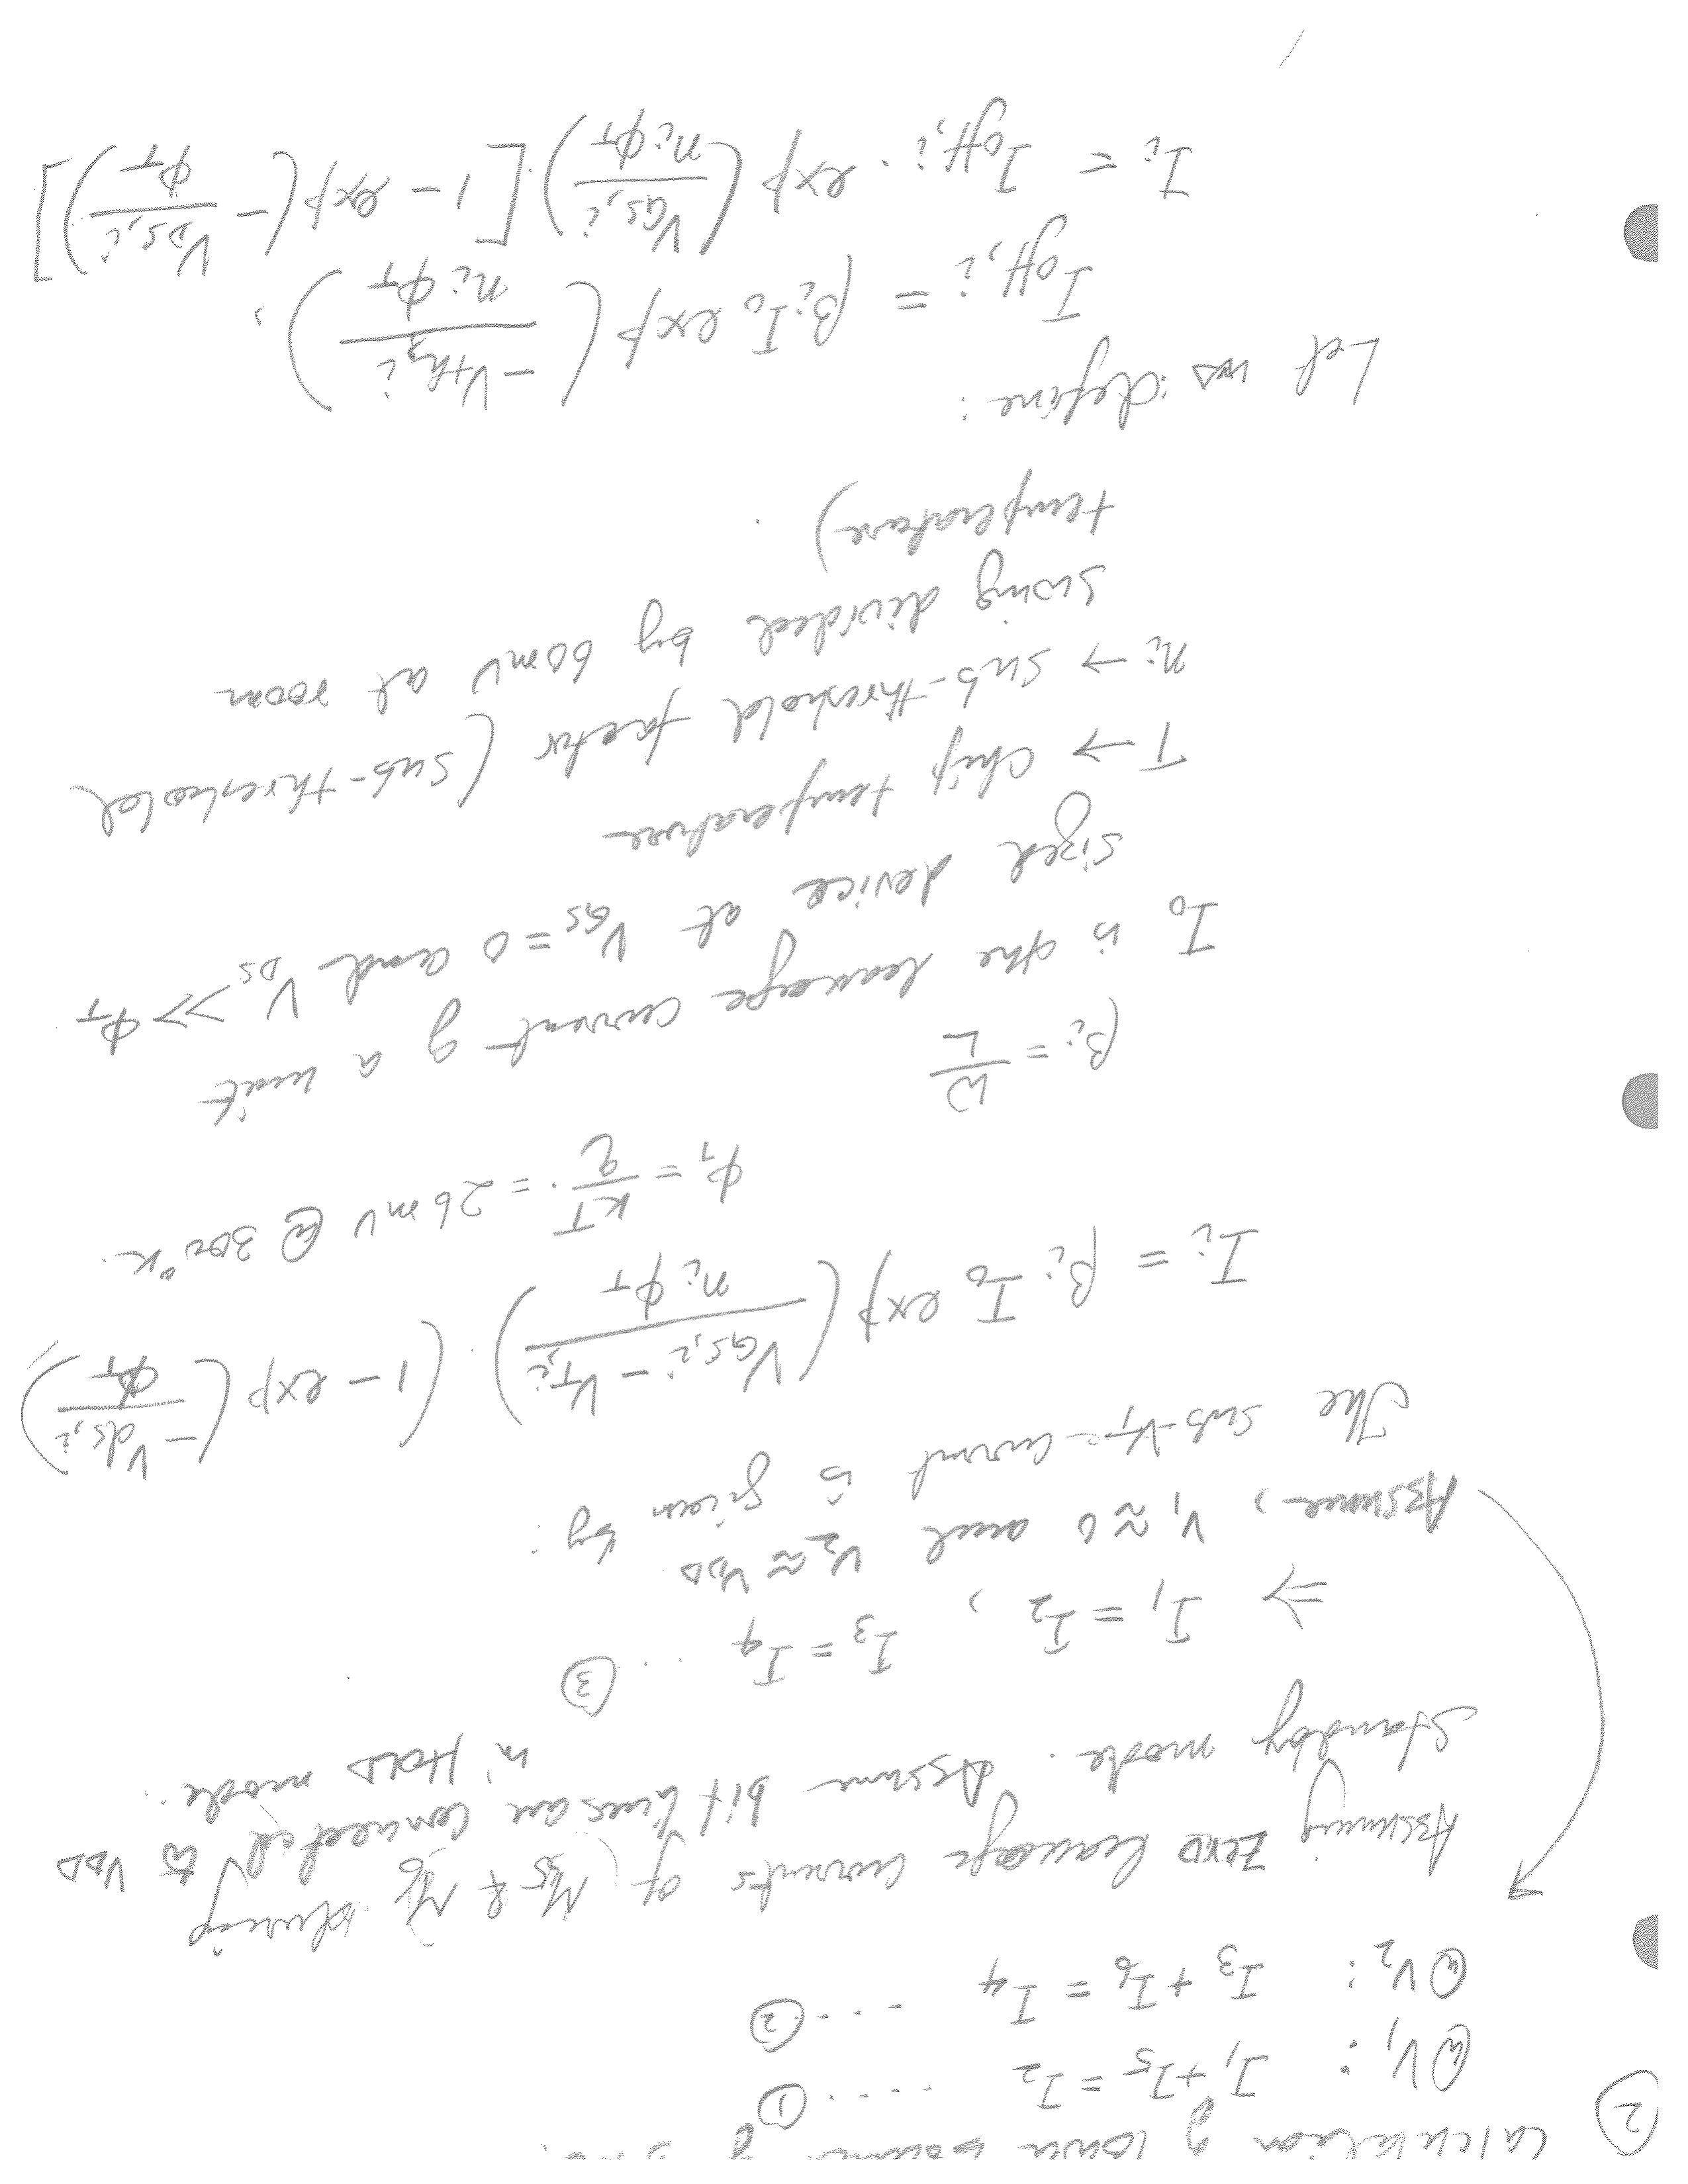 ② Calculation of lower bound of
@V₁ : I₁ + I₅ = I₂ .... ①
@V₂ : I₃ + I₆ = I₄ .... ②
Assuming zero leakage currents of M₅ & M₆ during
standby mode. Assume bit lines are connected to VDD
in HOLD mode.
⇒ I₁ = I₂ , I₃ = I₄ ... ③
Assume, V₁ ≈ 0 and V₂ ≈ VDD
The sub-V_T current is given by :
I_i = β_i I_0 exp ( (V_GS,i − V_T,i) / (n_i φ_T) ) · ( 1 − exp ( −V_ds,i / φ_T ) )
φ_T = KT/q · = 26 mV @ 300 °K.
β_i = W/L
I_0 is the leakage current of a unit
sized device at V_GS = 0 and V_DS >> φ_T
T → chip temperature
n_i → sub-threshold factor (sub-threshold
swing divided by 60mV at room
temperature) .
Let us define :
I_off,i = β_i I_0 exp ( −V_th,i / (n_i φ_T) ) ,
I_i = I_off,i · exp ( V_GS,i / (n_i φ_T) ) · [ 1 − exp ( − V_DS,i / φ_T ) ]